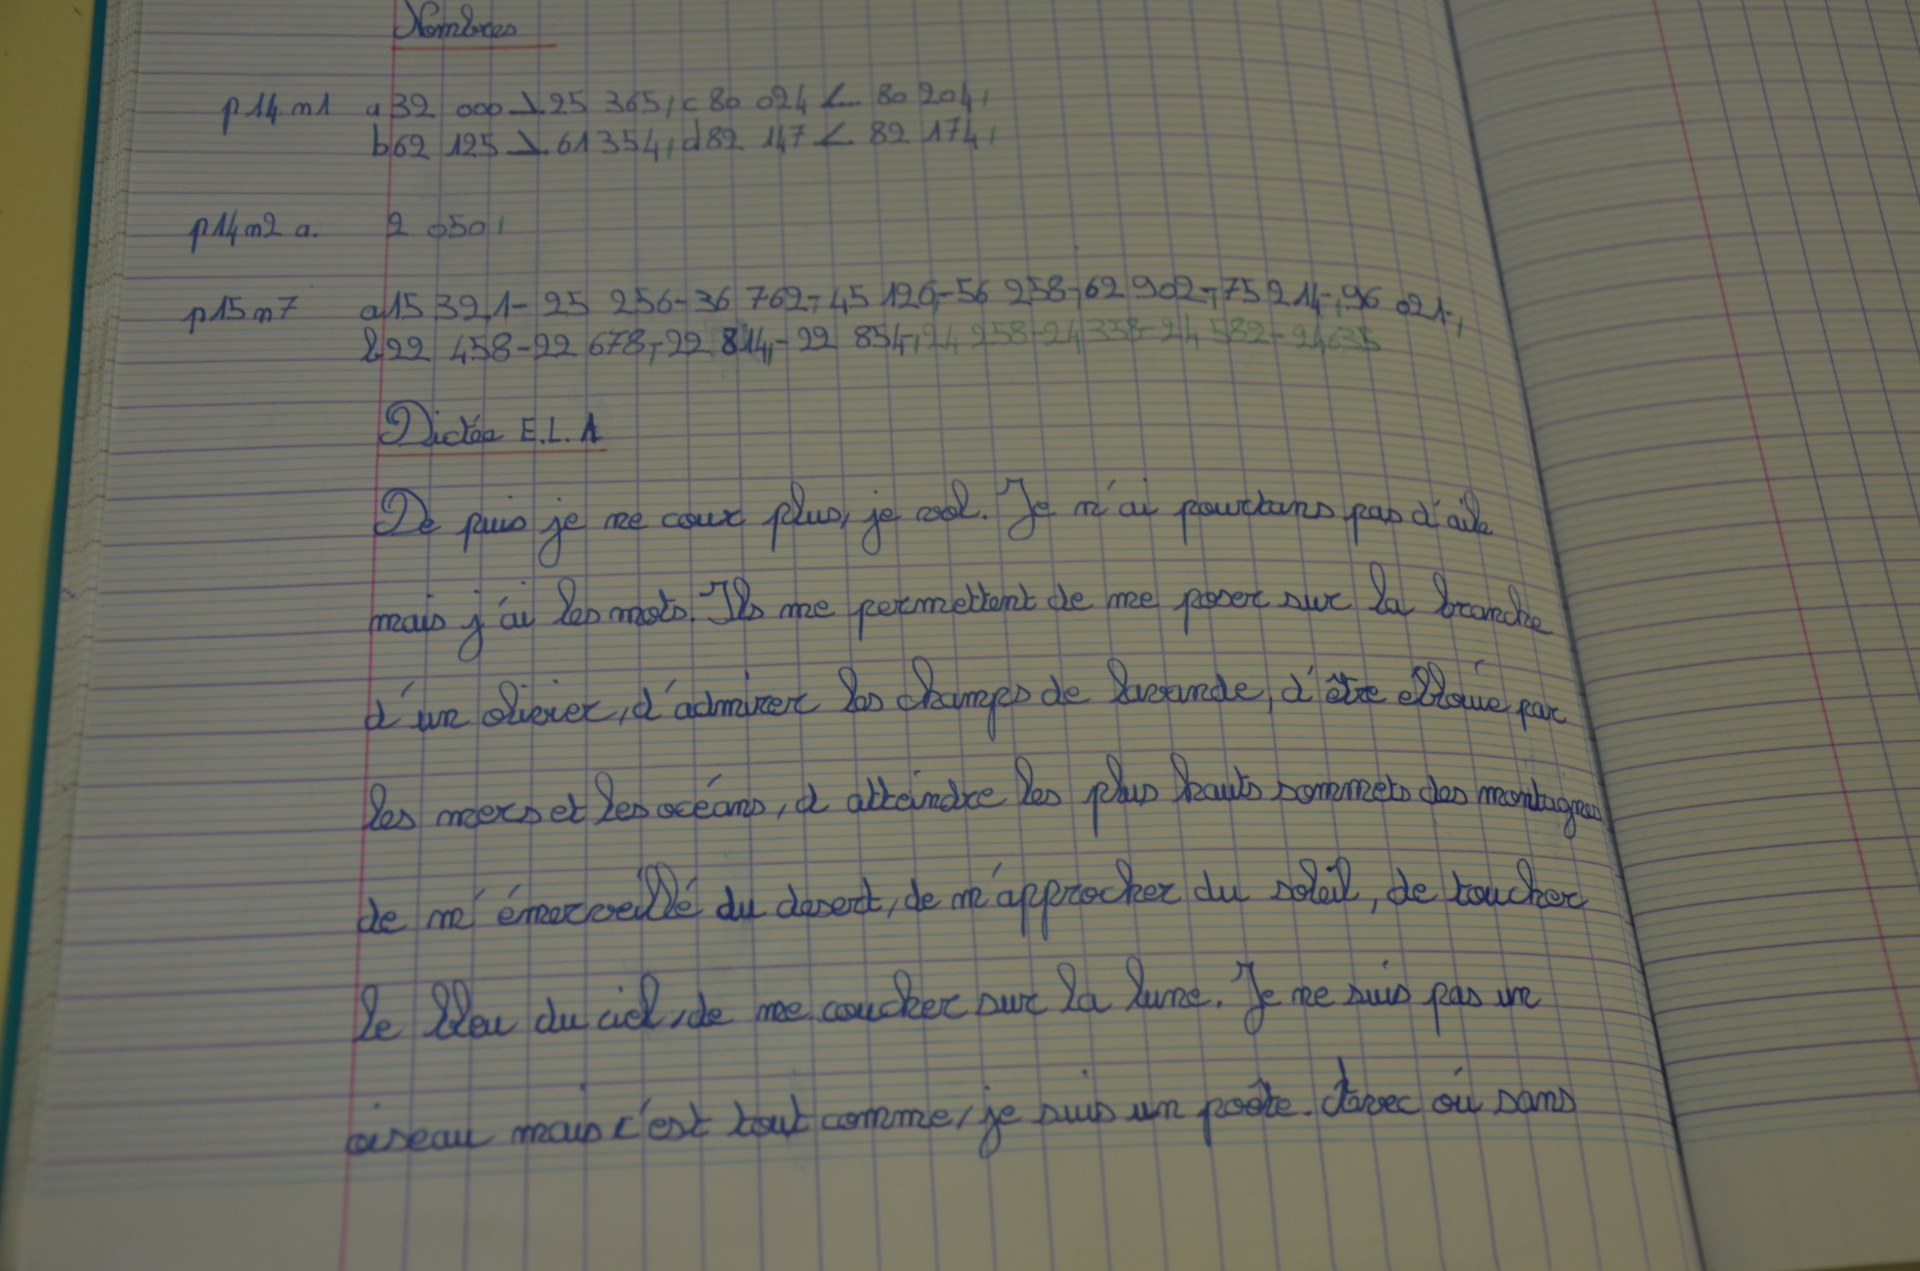 Nombres
p14 n1 a 32 000 > 25 365, c 80 024 < 80 204,
b 62 125 > 61 354, d 82 147 < 82 174,
p14 n2 a. 2 050,
p15 n7 a 15 321 - 25 256 - 36 762 - 45 126 - 56 258 - 62 902 - 75 214 - 96 021 -
b 22 458 - 22 678 - 22 814 - 22 854 - 24 258 - 24 338 - 24 582 - 24635
Dictée E.L.A
De puis je ne coux plus, je vol. Je n'ai pourtans pas d'aile
mais j'ai les mots. Ils me permettent de me poser sur la branche
d'un olivier, d'admirer les champs de lavande, d'être elloùie par
les mers et les océans, d atteindre les plus hauts sommets des montagnes
de m'émerveillé du desert, de m'approcher du soleil, de toucher
le bleu du ciel, de me coucher sur la lune. Je ne suis pas un
oiseau mais c'est tout comme, je suis un poête. Avec où sans